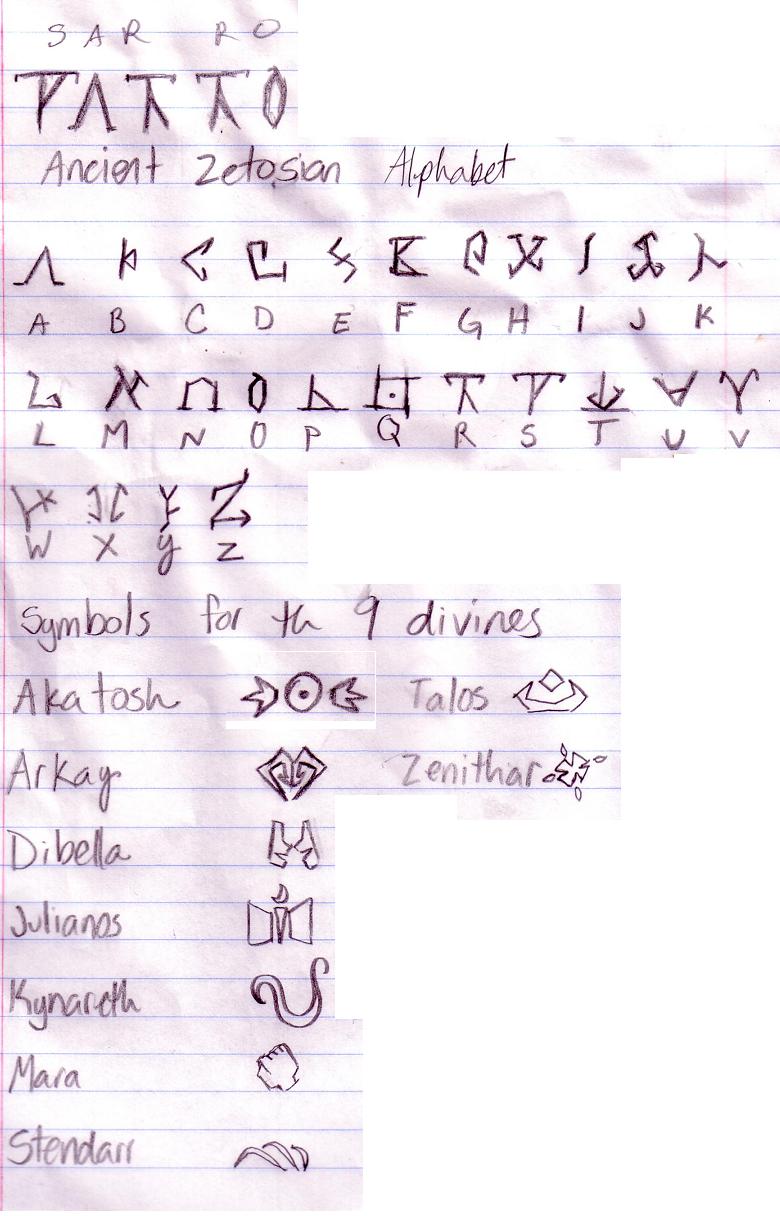 S A R R O
Ancient Zetosian Alphabet
A B C D E F G H I J K
L M N O P Q R S T U V
W X y z
Symbols for th 9 divines
Akatosh Talos
Arkay Zenithar
Dibella
Julianos
Kynareth
Mara
Stendarr